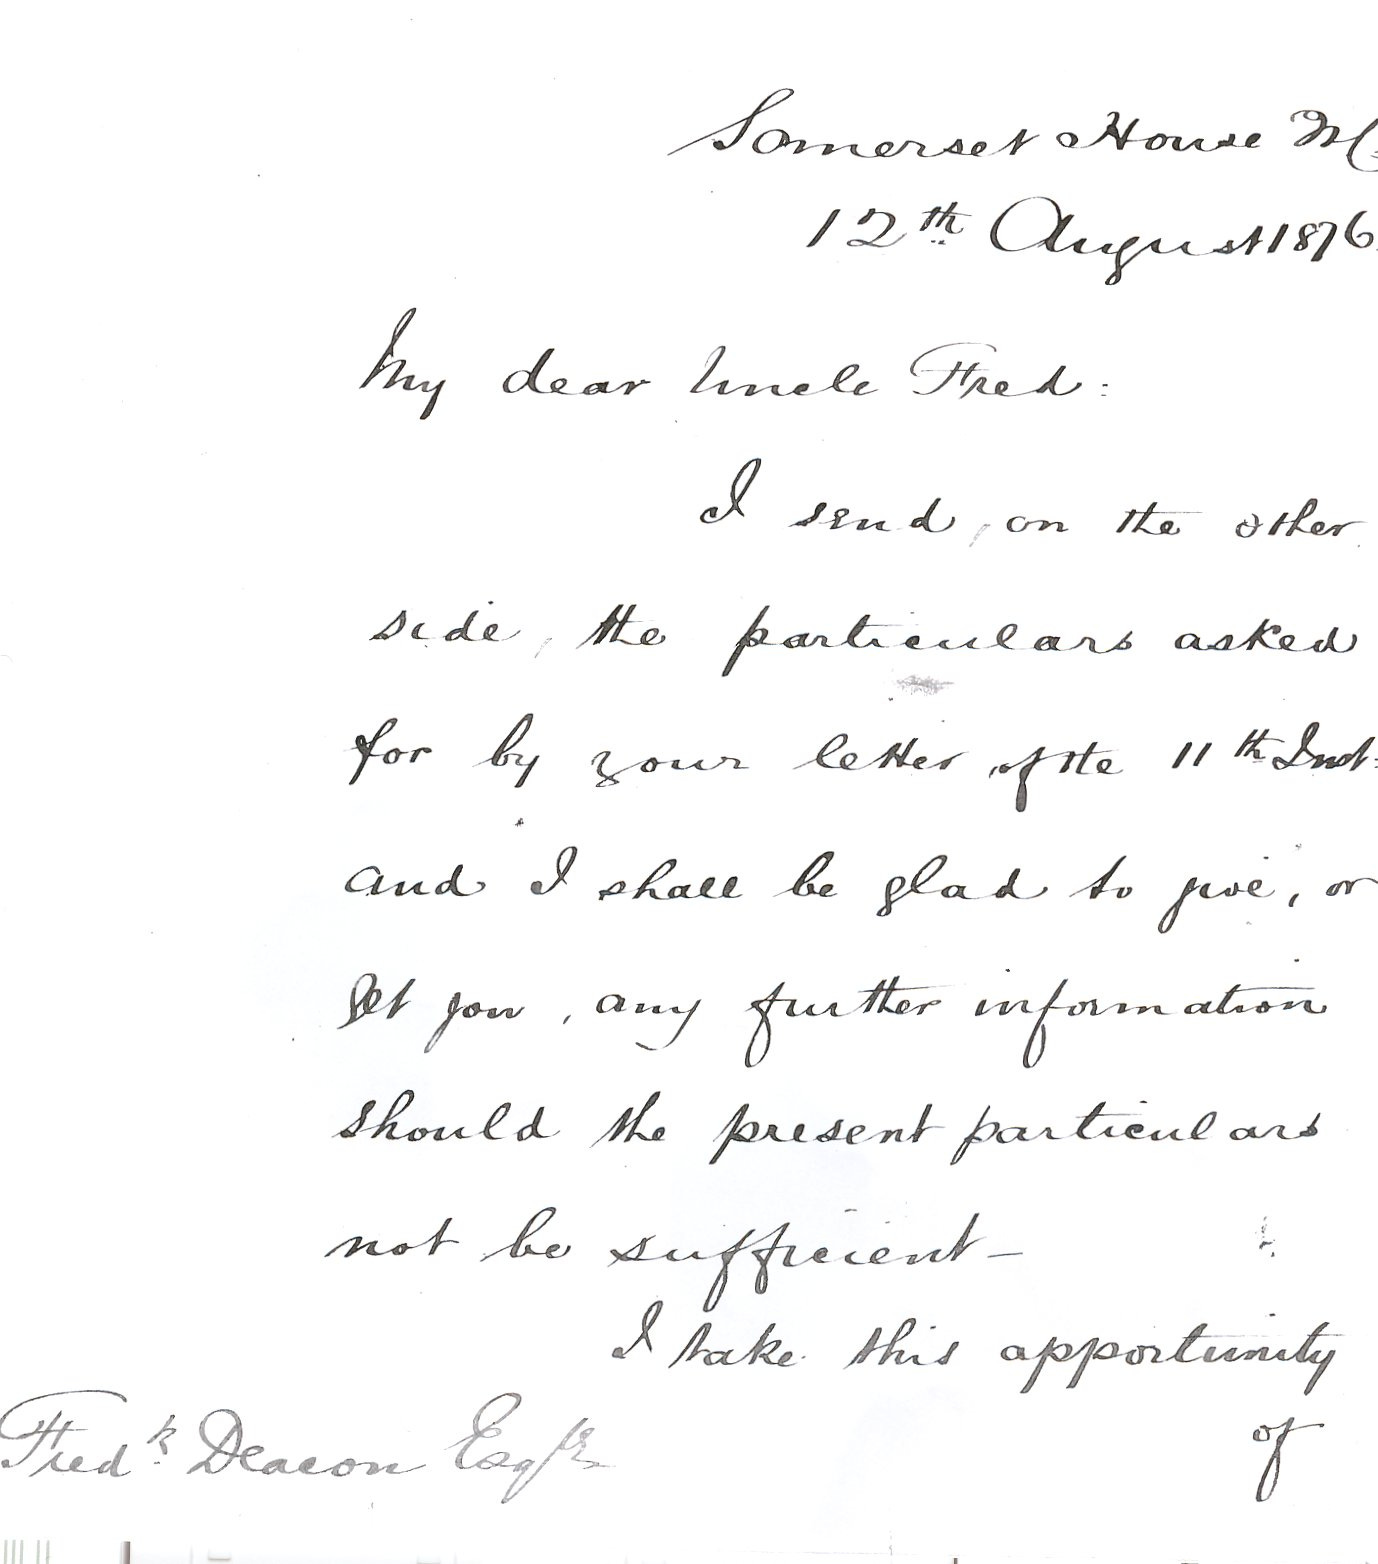 Somerset House
12th August 1876
My dear Uncle Fred:
I send, on the other
side, the particulars asked
for by your letter of the 11th Inst.
and I shall be glad to give, or
get you, any further information
should the present particulars
not be sufficient —
I take this opportunity
of
Fredk. Deacon Esqre